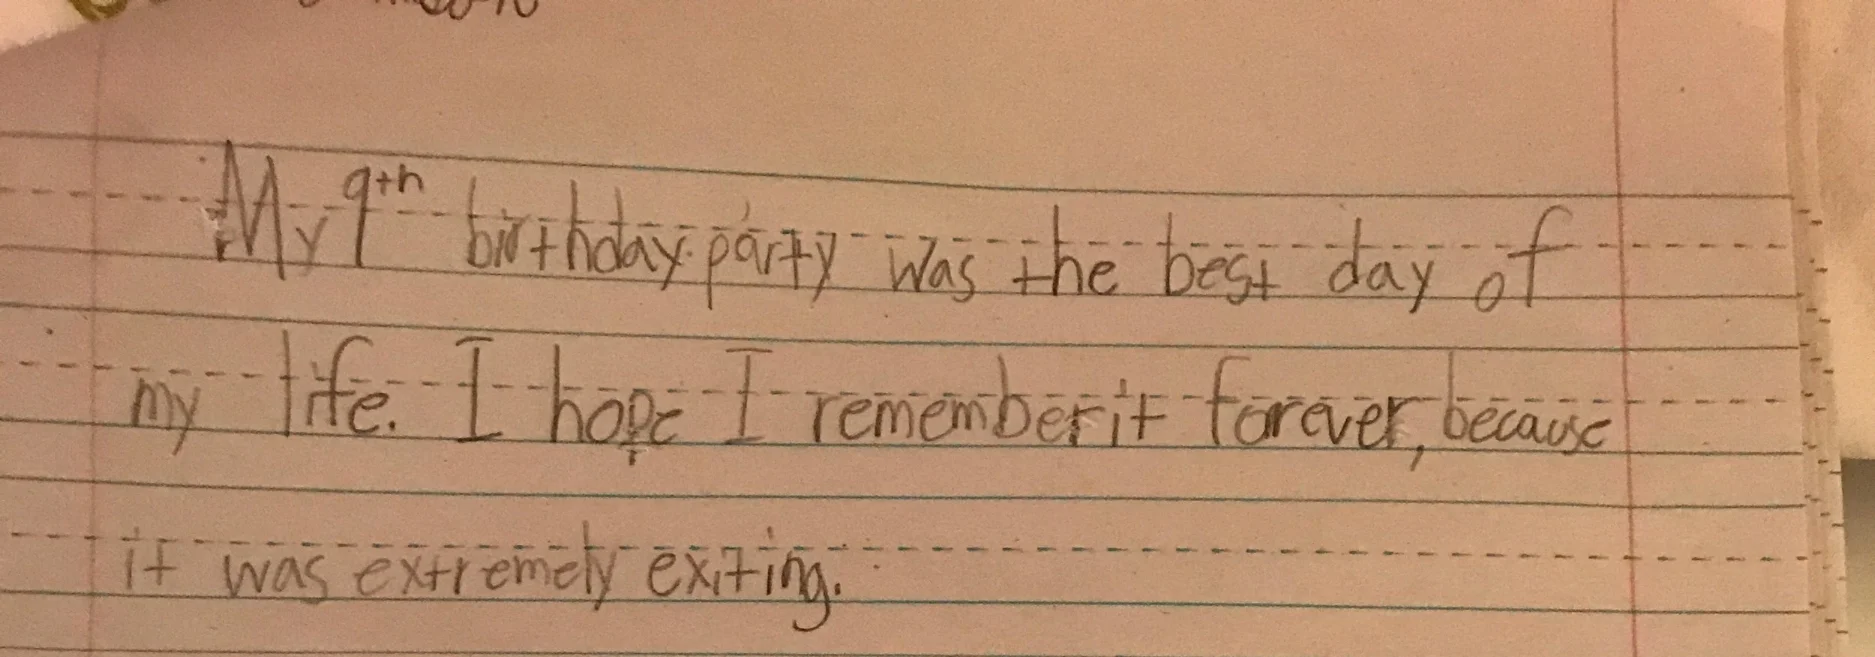 My 9th birthday party was the best day of
my life. I hope I remember it forever, because
it was extremely exiting.